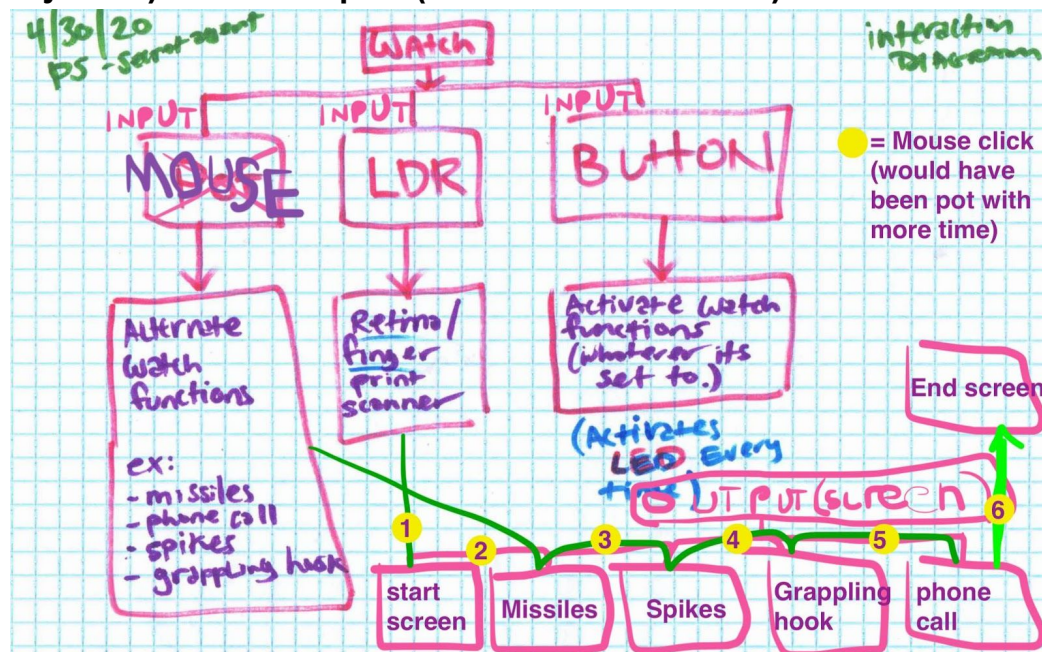 4/30/20
P5 - Secret agent
interaction
DIAGRAM
WATCH
INPUT
INPUT
INPUT
MOUSE
LDR
BUTTON
= Mouse click
(would have
been pot with
more time)
Alternate
watch
functions
ex:
- missiles
- phone call
- spikes
- grappling hook
Retina/
finger
print
scanner
Activate watch
functions
(whatever its
set to.)
(Activates
LED Every
time)
OUTPUT (screen)
End screen
1
2
3
4
5
6
start
screen
Missiles
Spikes
Grappling
hook
phone
call